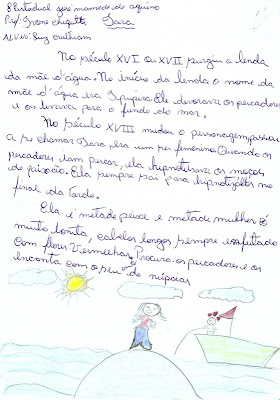 E Estadual José mamede de aquino
Prof: Irene
Iara
ALUNO:
No século XVI ou XVII surgiu a lenda
da mãe d'água. No início da lenda o nome da
mãe d'água era Ipupiara. Ele devorava os pescadores
e os levava para o fundo do mar.
No século XVIII mudou o personagem passou
a se chamar Iara, era um ser feminino. Quando os
pescadores iam pescar, ela hipnotisava os moços
de paixão. Ela sempre sai para hipnotizar no
final da tarde.
Ela é metade peixe e metade mulher é
muito bonita, cabelos longos sempre enfeitado
com flores vermelhas. Procura os pescadores e os
encanta com o seu de